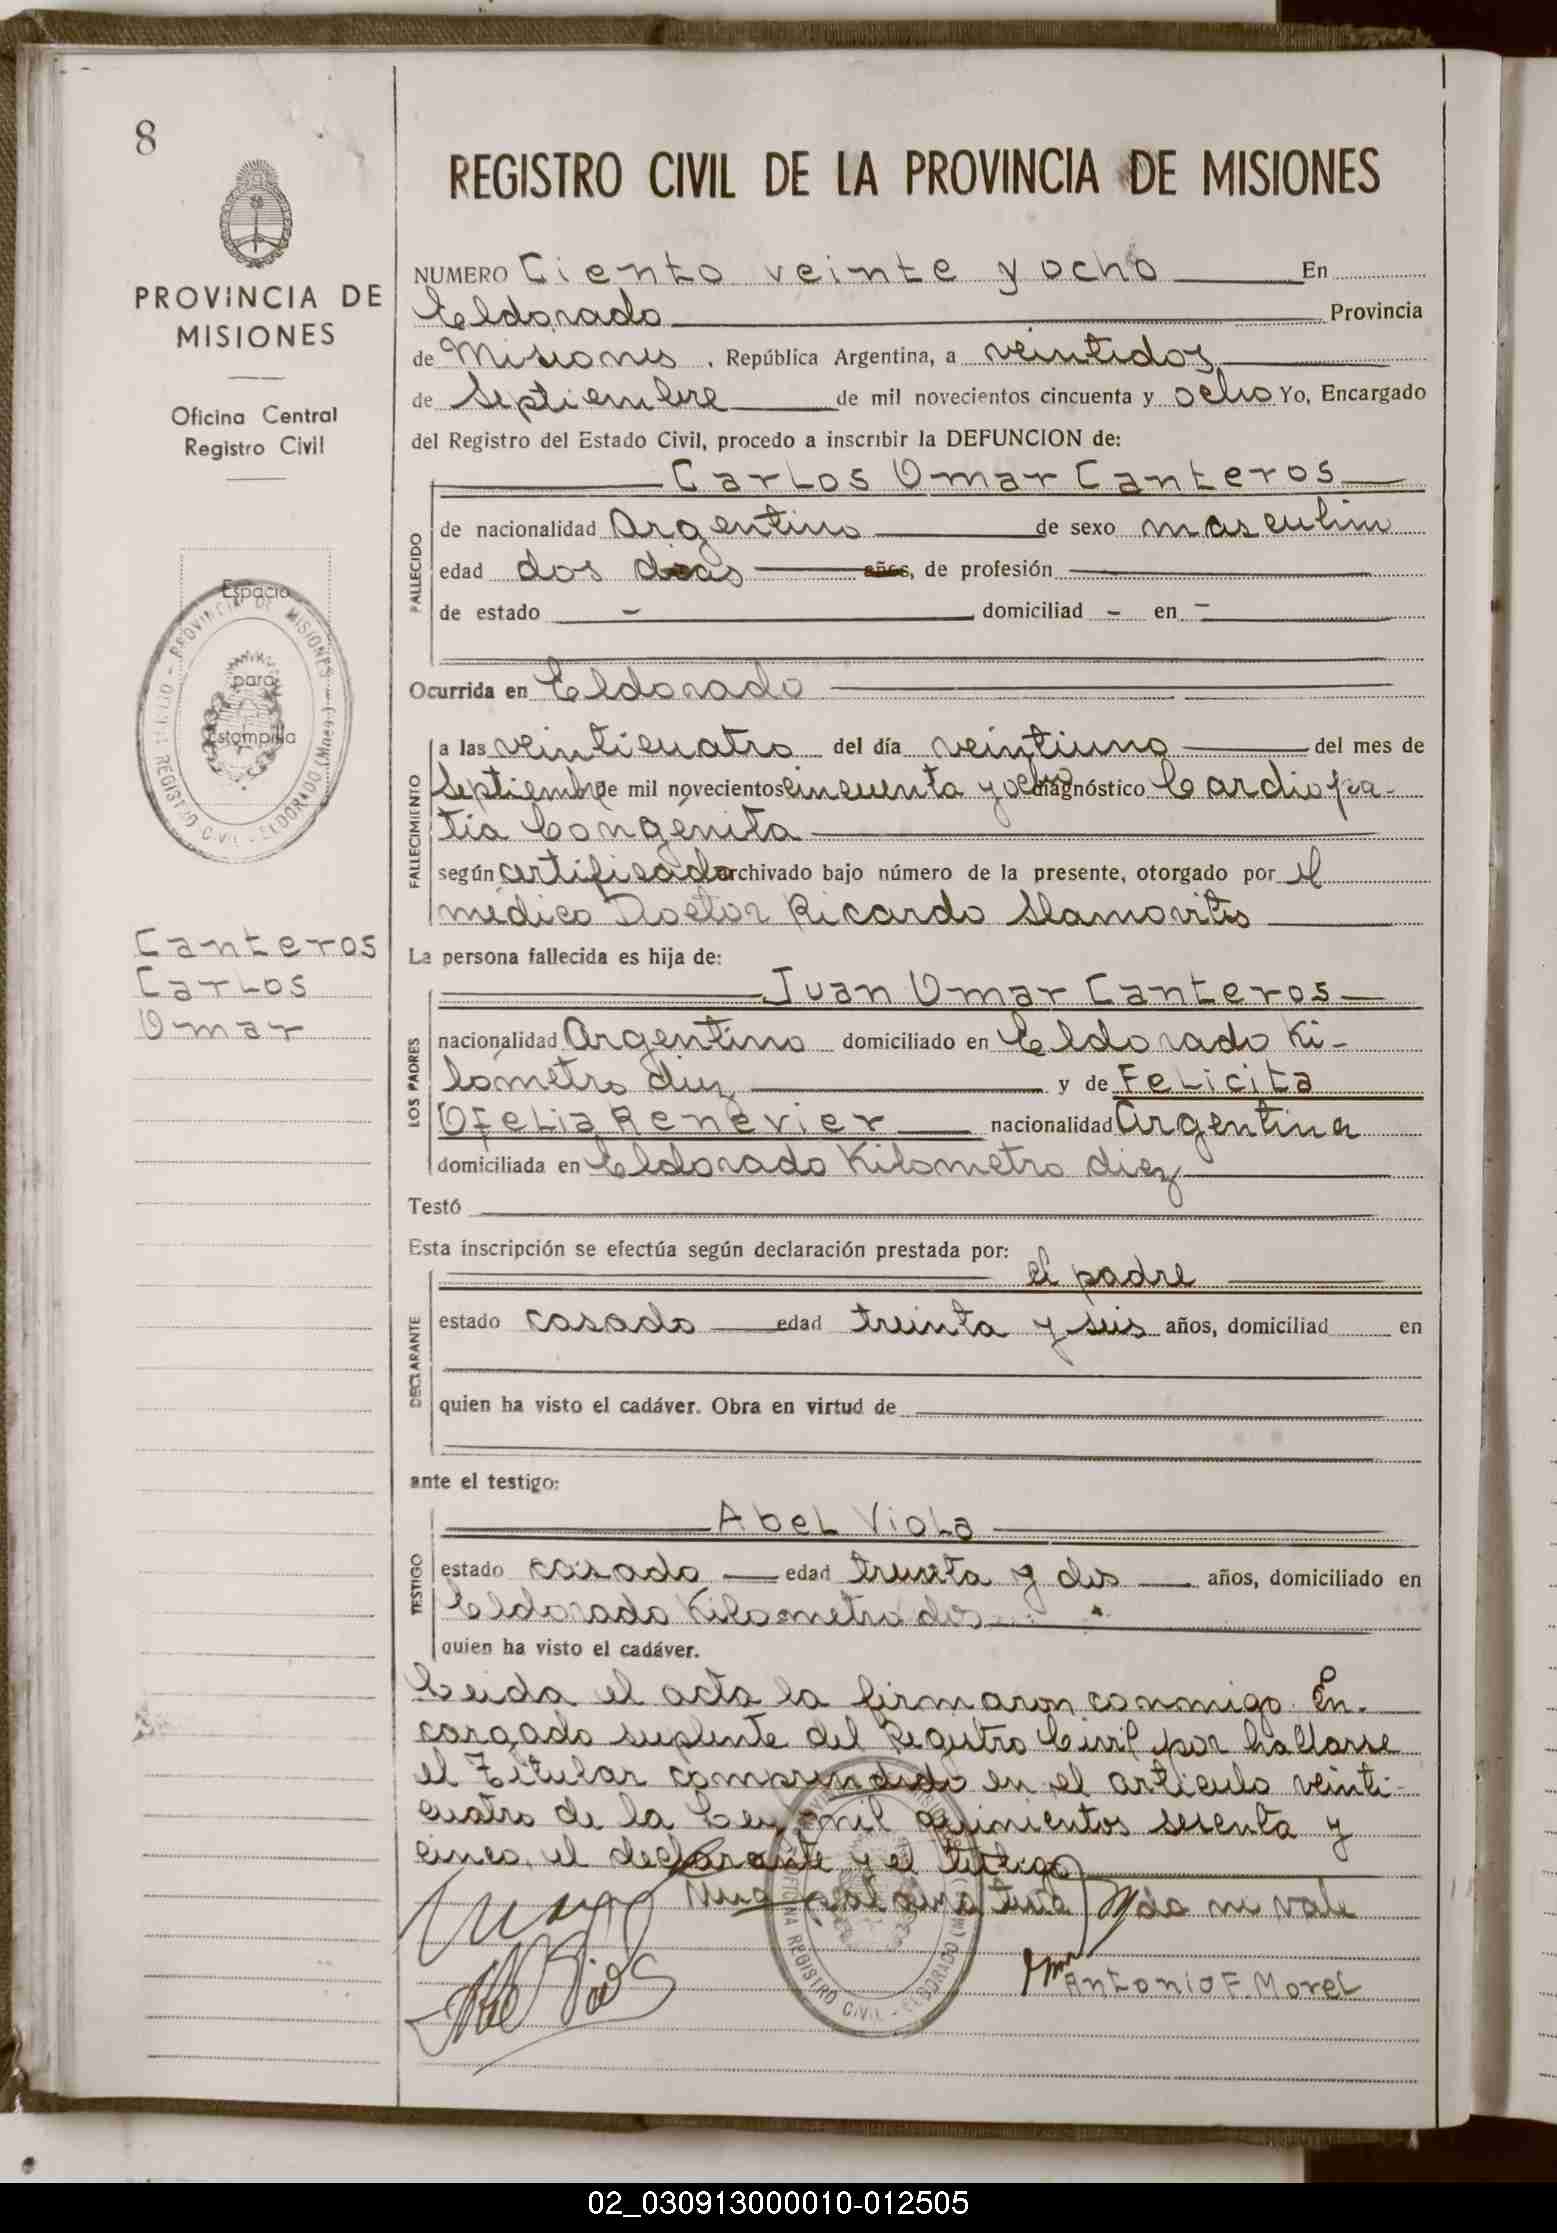 8
REGISTRO CIVIL DE LA PROVINCIA DE MISIONES
PROVINCIA DE
MISIONES
Oficina Central
Registro Civil
Espacio
para
Estampilla
Canteros
Carlos
Omar
NUMERO Ciento veinte y ocho En
Eldorado Provincia
de Misiones, República Argentina, a veintidos
de Septiembre de mil novecientos cincuenta y ocho Yo, Encargado
del Registro del Estado Civil, procedo a inscribir la DEFUNCION de:
Carlos Omar Canteros
FALLECIDO
de nacionalidad Argentino de sexo masculino
edad dos dias años, de profesión
de estado - domiciliad - en -
Ocurrida en Eldorado
FALLECIMIENTO
a las veinticuatro del día veintiuno del mes de
Septiembre de mil novecientos cincuenta y ocho diagnóstico Cardiopa-
tia Congénita
según certificado archivado bajo número de la presente, otorgado por el
médico Doctor Ricardo
La persona fallecida es hija de:
Juan Omar Canteros
LOS PADRES
nacionalidad Argentino domiciliado en Eldorado Ki-
lómetro diez y de Felicita
Ofelia Renevier nacionalidad Argentina
domiciliada en Eldorado Kilometro diez
Testó
Esta inscripción se efectúa según declaración prestada por:
el padre
DECLARANTE
estado casado edad treinta y seis años, domiciliad en
quien ha visto el cadáver. Obra en virtud de
ante el testigo:
Abel Viola
TESTIGO
estado casado edad treinta y dos años, domiciliado en
Eldorado Kilometro dos
quien ha visto el cadáver.
Leida el acta la firmaron conmigo En-
cargado suplente del Registro Civil por hallarse
el Titular comprendido en el articulo veinti-
cuatro de la Ley mil quinientos sesenta y
cinco, el declarante y el testigo
no vale
Antonio F. Morel
REGISTRO CIVIL - ELDORADO (Mnes.)
PROVINCIA DE MISIONES
OFICINA REGISTRO CIVIL - ELDORADO
02_030913000010-012505